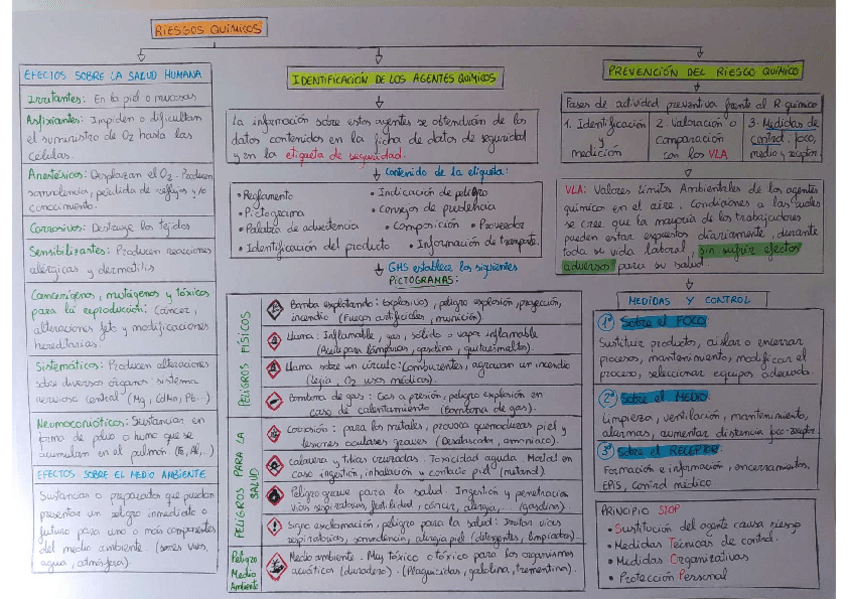 RIESGOS QUÍMICOS
EFECTOS SOBRE LA SALUD HUMANA
Irritantes: En la piel o mucosas
Asfixiantes: Impiden o dificultan
el suministro de O2 hasta las
células.
Anestésicos: Desplazan el O2. Producen
somnolencia, pérdida de reflejos y/o
conocimiento.
Corrosivos: Destruye los tejidos
Sensibilizantes: Producen reacciones
alérgicas y dermatitis
Cancerígenos, mutágenos y tóxicos
para la reproducción: Cáncer,
alteraciones feto y modificaciones
hereditarias.
Sistemáticos: Producen alteraciones
sobre diversos órganos sistema
nervioso central (Mg, CdMn, Pb...)
Neumoconióticos: Sustancias en
forma de polvo o humo que se
acumulan en el pulmón
EFECTOS SOBRE EL MEDIO AMBIENTE
Sustancias o preparados que puedan
presentar un peligro inmediato o
futuro para uno o más componentes
del medio ambiente. (seres vivos,
agua, atmósfera).
IDENTIFICACIÓN DE LOS AGENTES QUÍMICOS
La información sobre estos agentes se obtendrán de los
datos contenidos en la ficha de datos de seguridad
y en la etiqueta de seguridad.
contenido de la etiqueta:
• Reglamento
• Pictograma
• Palabra de advertencia
• Identificación del producto
• Indicación de peligro
• Consejos de prudencia
• Composición • Proveedor
• Información de transporte.
GHS establece los siguientes
PICTOGRAMAS:
PELIGROS FÍSICOS
Bomba explotando: Explosivos, peligro explosión, proyección,
incendio (Fuegos artificiales, munición).
Llama: Inflamable, gas, sólido o vapor inflamable
(Aceite para lámparas, gasolina, quitaesmaltes).
Llama sobre un círculo: Comburentes, agravan un incendio
(lejía, O2 usos médicos).
Bombona de gas: Gas a presión, peligro explosión en
caso de calentamiento (Bombona de gas).
PELIGROS PARA LA SALUD
Corrosión: para los metales, provoca quemaduras piel y
lesiones oculares graves (Desatascador, amoniaco).
Calavera y tibias cruzadas. Toxicidad aguda. Mortal en
caso ingestión, inhalación y contacto piel (metanol).
Peligro grave para la salud. Ingestión y penetración
vías respiratorias, fertilidad, cáncer, alergia,... (gasolina)
Signo exclamación, peligro para la salud: Irritan vías
respiratorias, somnolencia, alergia piel (detergentes, limpiador).
Peligro Medio Ambiente
Medio ambiente. Muy tóxico o tóxico para los organismos
acuáticos (duradero). (Plaguicidas, gasolina, trementina).
PREVENCIÓN DEL RIESGO QUÍMICO
Fases de actividad preventiva frente al R químico
1. Identificación
y
medición
2. Valoración o
comparación
con los VLA
3. Medidas de
control. foco,
medio y receptor.
VLA: Valores límites Ambientales de los agentes
químicos en el aire. Condiciones a las cuales
se cree que la mayoría de los trabajadores
pueden estar expuestos diariamente, durante
toda su vida laboral, sin sufrir efectos
adversos para su salud
MEDIDAS Y CONTROL
1º Sobre el FOCO
Sustituir productos, aislar o encerrar
procesos, mantenimiento, modificar el
proceso, seleccionar equipos adecuada.
2º Sobre el MEDIO:
Limpieza, ventilación, mantenimiento,
alarmas, aumentar distancia foco-receptor.
3º Sobre el RECEPTOR:
Formación e información, encerramientos,
EPIS, control médico
PRINCIPIO STOP
• Sustitución del agente causa riesgo
• Medidas Técnicas de control.
• Medidas Organizativas
• Protección Personal